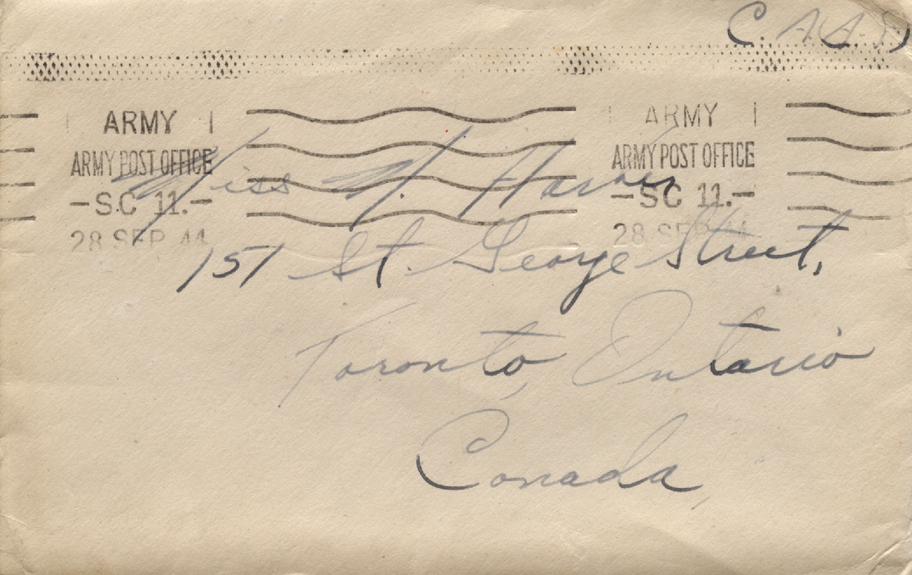 C. A. A. S)
ARMY ARMY
ARMY POST OFFICE ARMY POST OFFICE
-S.C 11.- -SC 11.-
28 SEP 44 28 SEP 44
Miss N. Harvey
151 St. George Street,
Toronto, Ontario
Canada,